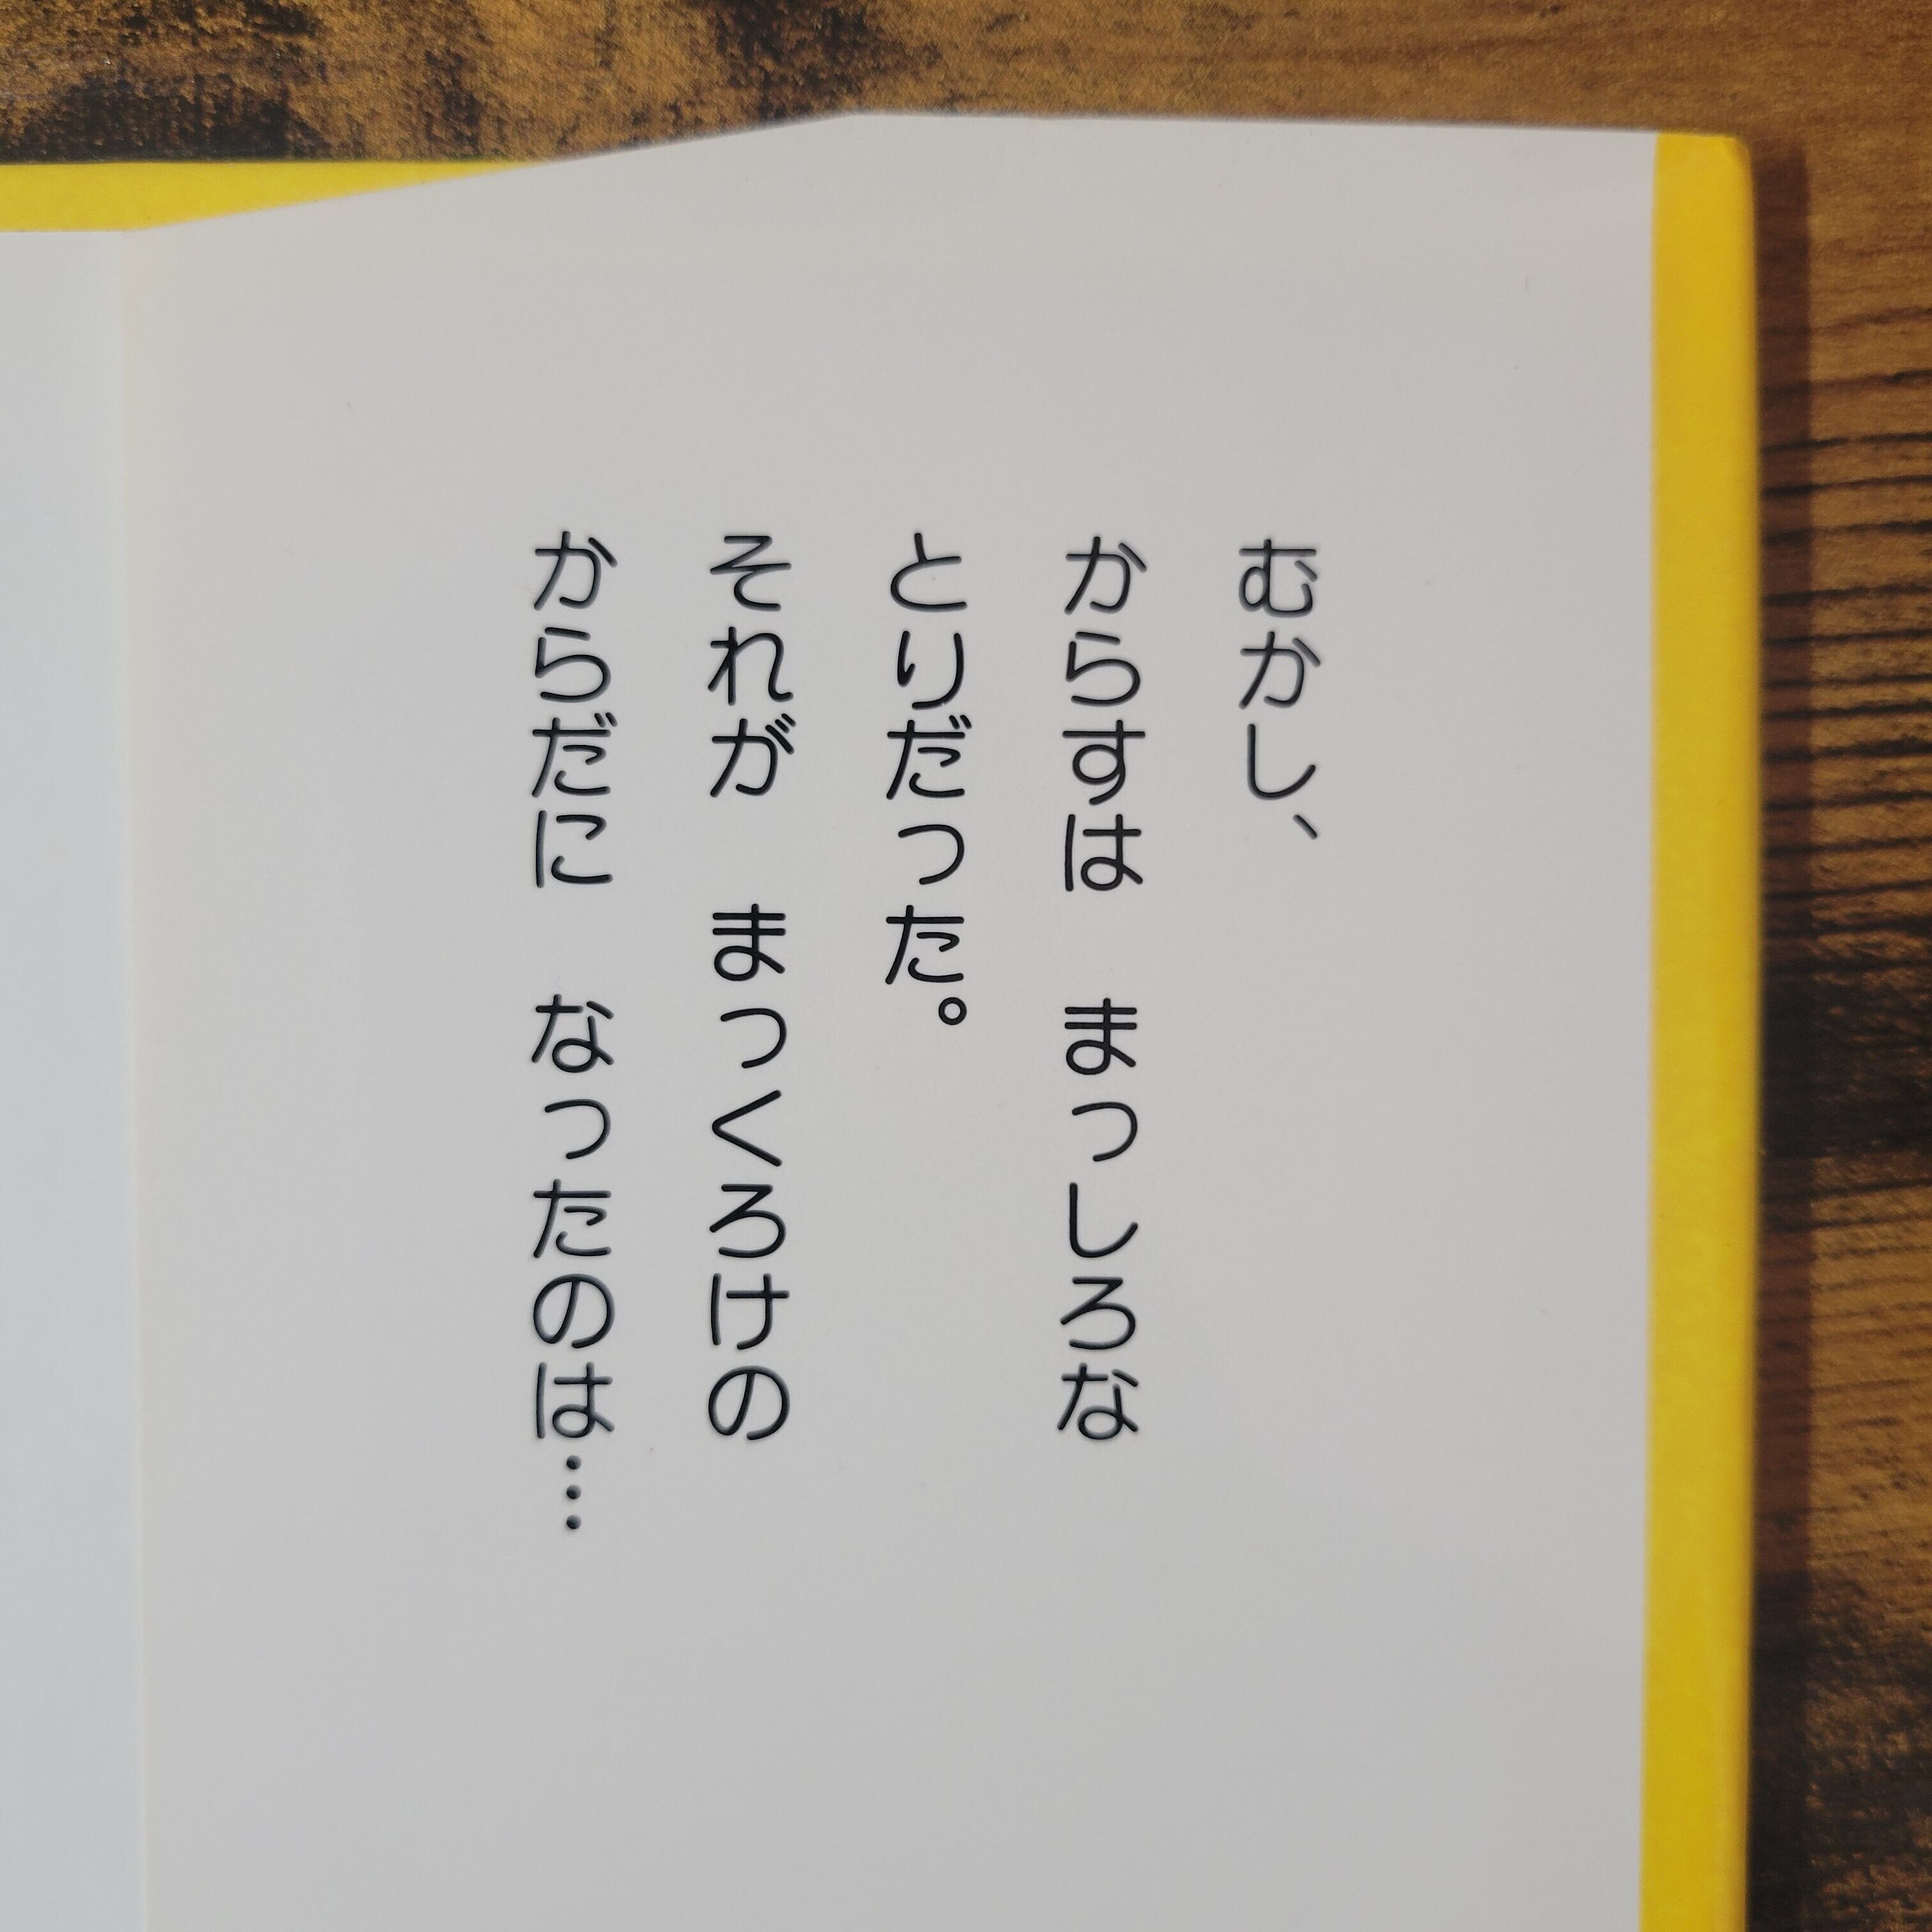 むかし、
からすは　まっしろな
とりだった。
それが　まっくろけの
からだに　なったのは…